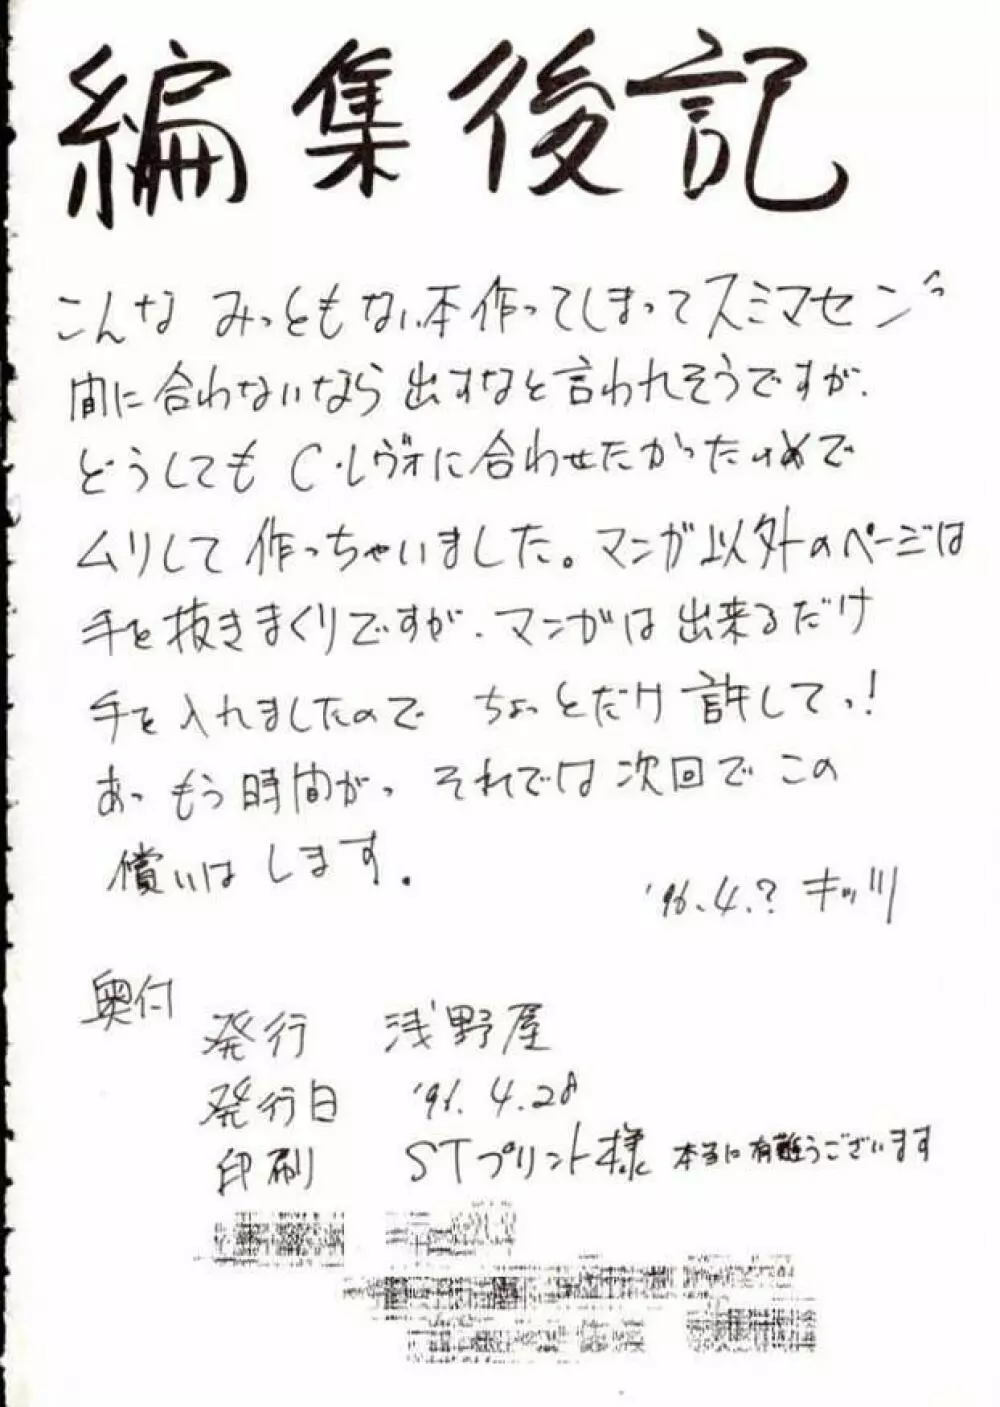 編集後記
こんな みっともない本作ってしまってスミマセンっ
間に合わないなら 出すなと言われそうですが、
どうしても C・レヴォに合わせたかったためで
ムリして 作っちゃいました。マンガ以外のページは
手を抜きまくりですが、マンガは出来るだけ
手を入れましたので ちょっとだけ 許してっ!
あっ もう時間がっ それでは次回で この
償いは します。
'96.4.? キッツ
奥付
発行 浅野屋
発行日 '96.4.28
印刷 STプリント様 本当に有難うございます